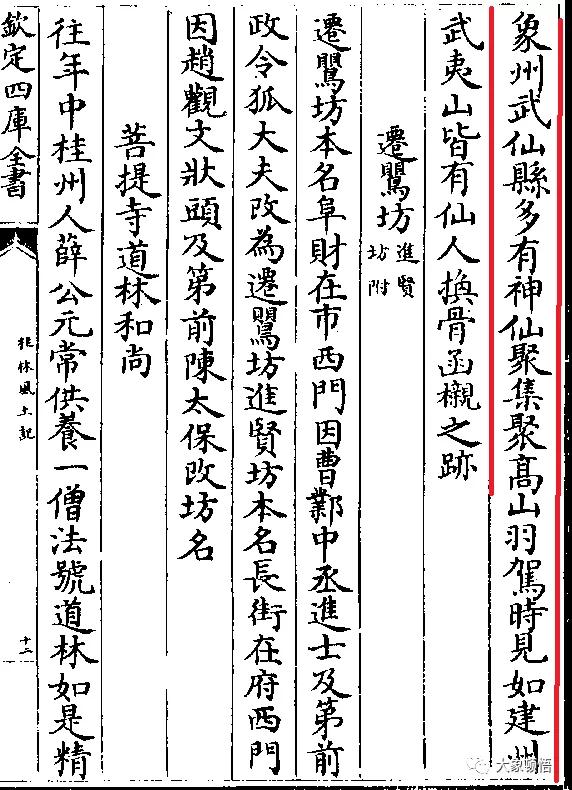 象州武仙縣多有神仙聚集聚髙山羽駕時見如建州
武夷山皆有仙人換骨函櫬之跡
遷鸎坊進賢
坊附
遷鸎坊本名阜財在市西門因曹鄴中丞進士及第前
政令狐大夫改為遷鸎坊進賢坊本名長街在府西門
因趙觀文狀頭及第前陳太保改坊名
菩提寺道林和尚
往年中桂州人薛公元常供養一僧法號道林如是精
欽定四庫全書
桂林風土記
十二
大象頓悟